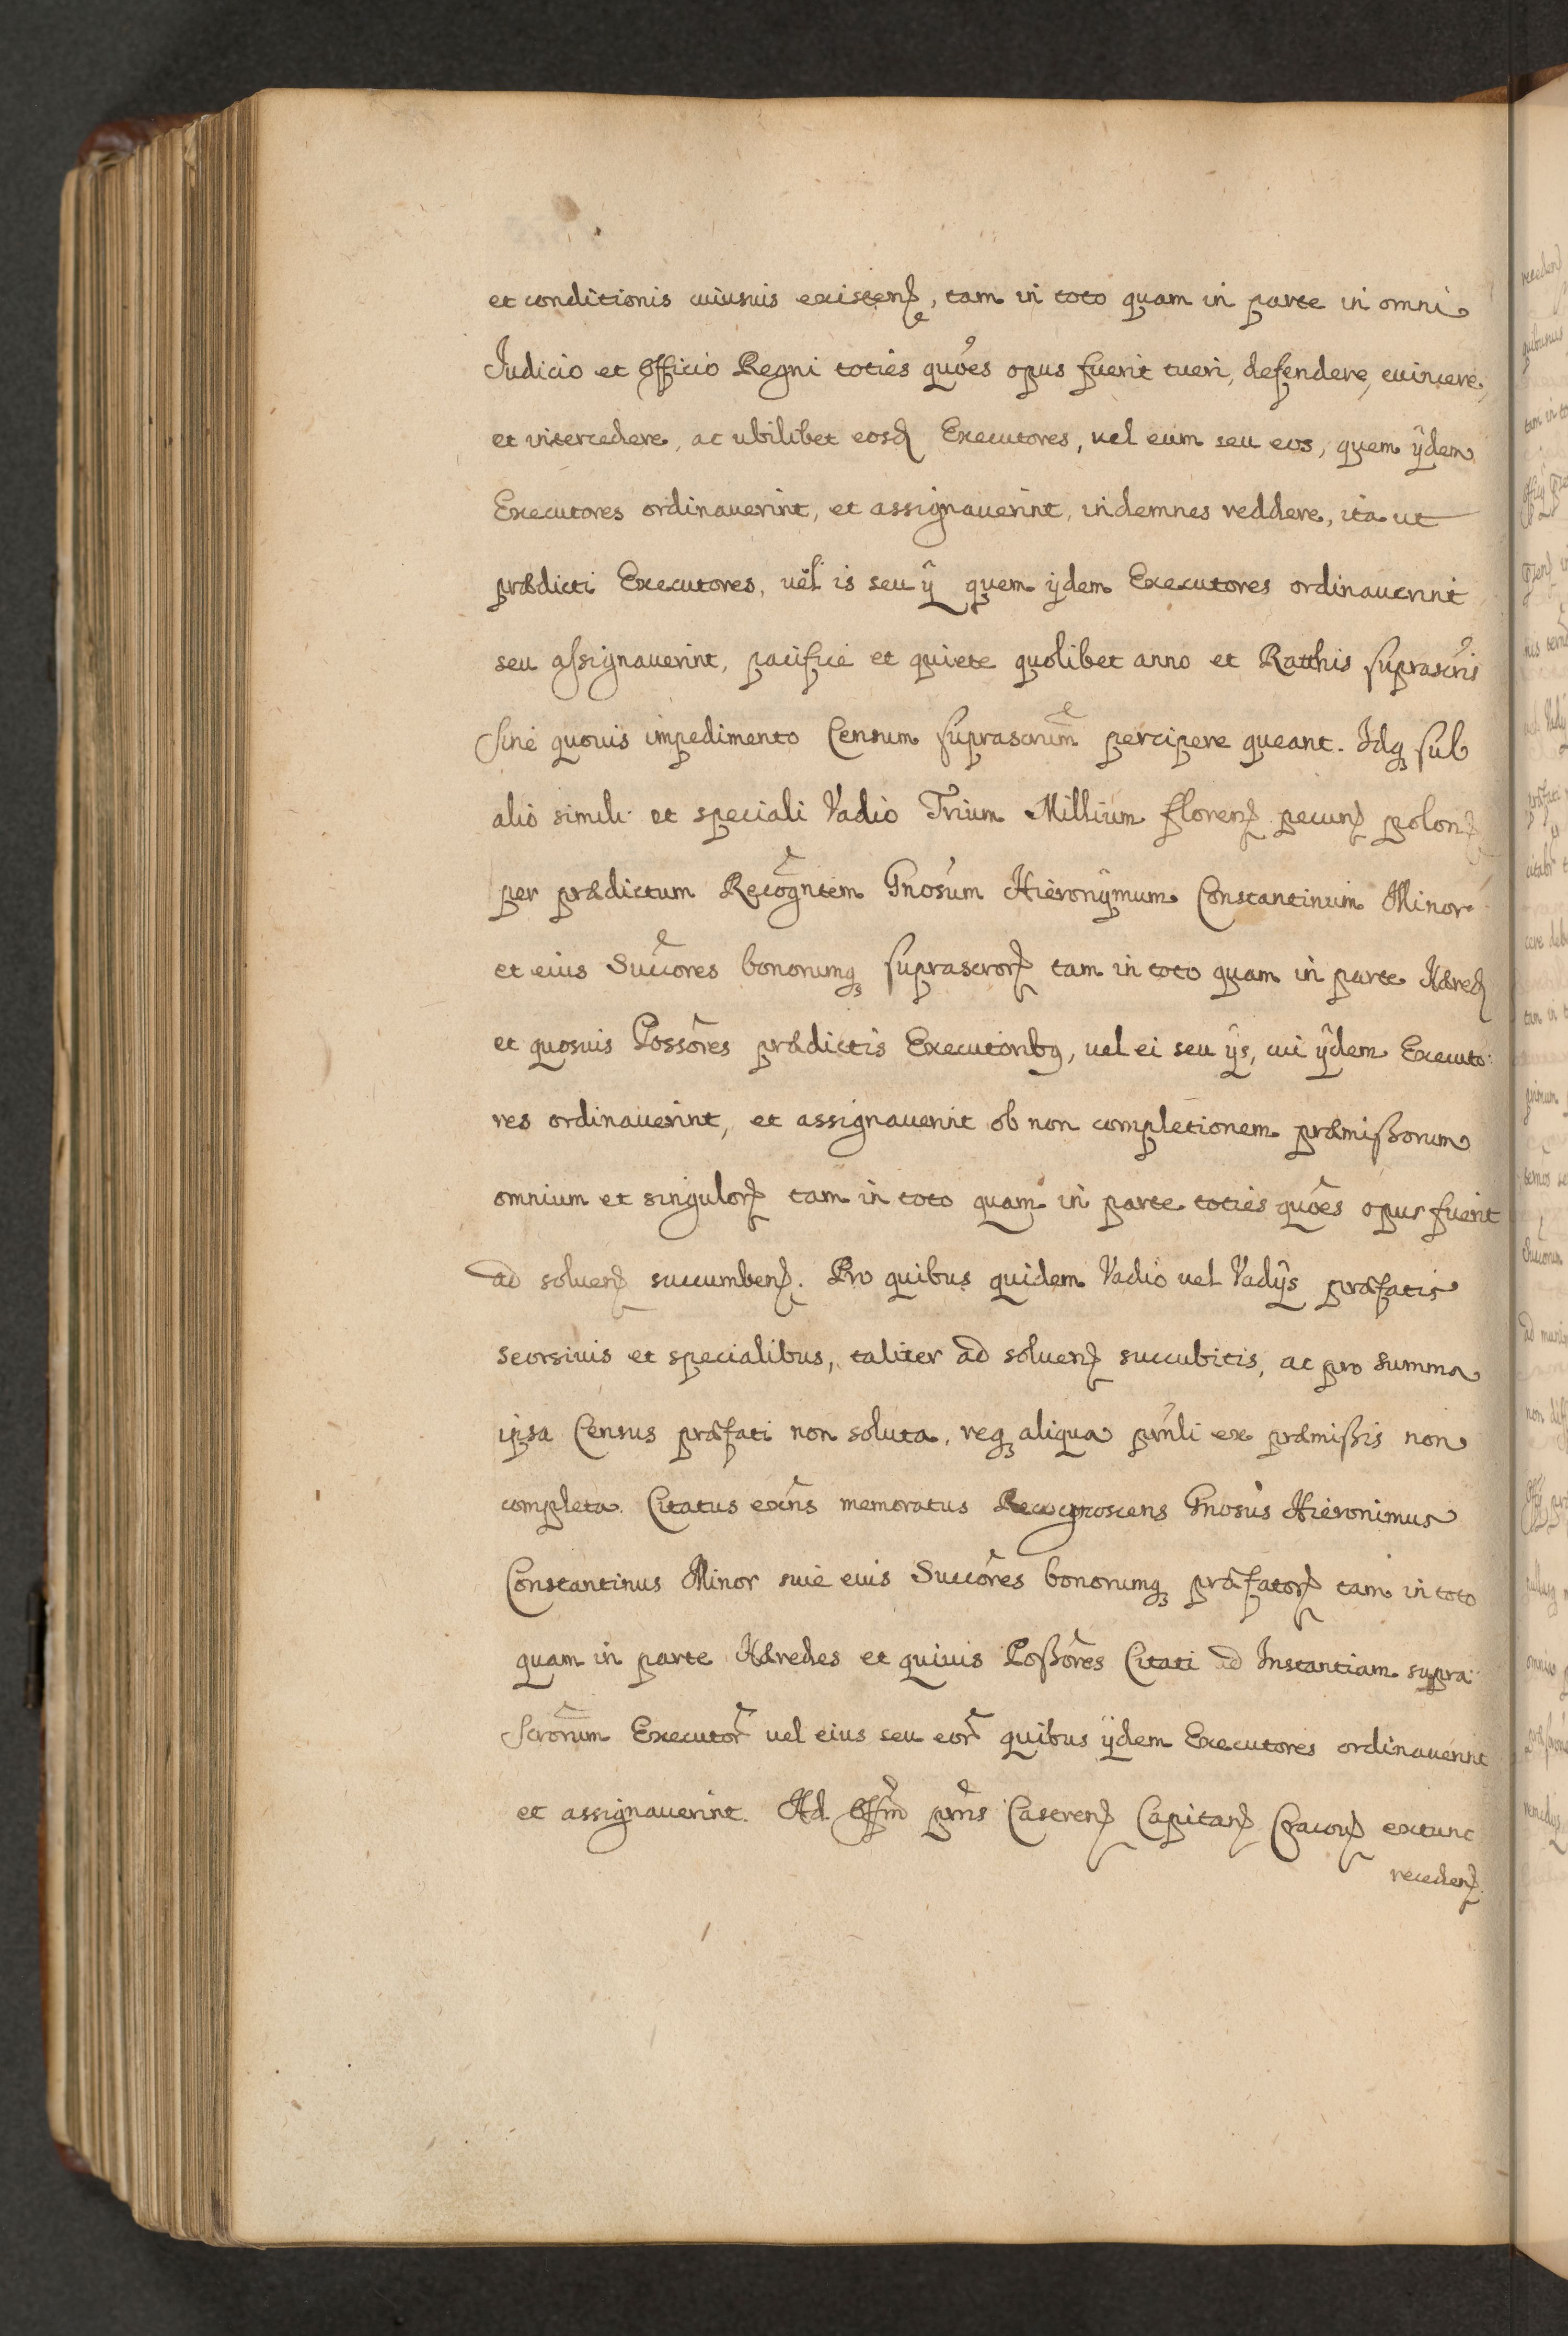 et conditionis cuiusuis existenꝭ, tam in toto quam in parte in omni
Judicio et Officio Regni toties quoẽs opus fuerit tueri, defendere, euincere,
et intercedere, ac ubilibet eosd Executores, uel eum seu eos, quem ÿdem
Executores ordinauerint, et assignauerint, indemnes reddere, ita ut
prædicti Executores, uel is seu ÿ quem ÿdem Executores ordinauerint
seu assignauerint, pacifice et quiete quolibet anno et Ratthis suprascrĩs
sine quouis impedimento Censum suprascrũm percipere queant. Idq́ sub
alio simili et speciali Vadio Trium Millium florenꝭ pecunꝭ polonꝭ
per prædictum Recogñtem Gnosum Hieronÿmum Constantinum Minor
et eius Succõres bonorumq́ suprascrorꝭ tam in toto quam in parte Hæred
et quosuis Possõres prædictis Executoribq, uel ei seu ÿs, cui ÿdem Executo:
res ordinauerint, et assignauerint ob non completionem præmissorum
omnium et singulorꝭ tam in toto quam in parte toties quoẽs opus fuerit
ad soluenꝭ succumbenꝭ. Pro quibus quidem Vadio uel Vadÿs præfatis
seorsiuis et specialibus, taliter ad soluenꝭ succubitis, ac pro summa
ipsa Census præfati non soluta, req́ aliqua prñli ex præmissis non
completa. Citatus exñs memoratus Recognoscens Gnosus Hieronimus
Constantinus Minor siue euis Succõres bonorumq́ præfatorꝭ tam in toto
quam in parte Hæredes et quiuis Possõres Citati ad Instantiam supra:
scrorum Executor̃ uel eius seu eor̃ quibus ÿdem Executores ordinauerint
et assignauerint. Ad Offm̃ prñs Castrenꝭ Capitanꝭ Cracouꝭ extunc
recedenꝭ